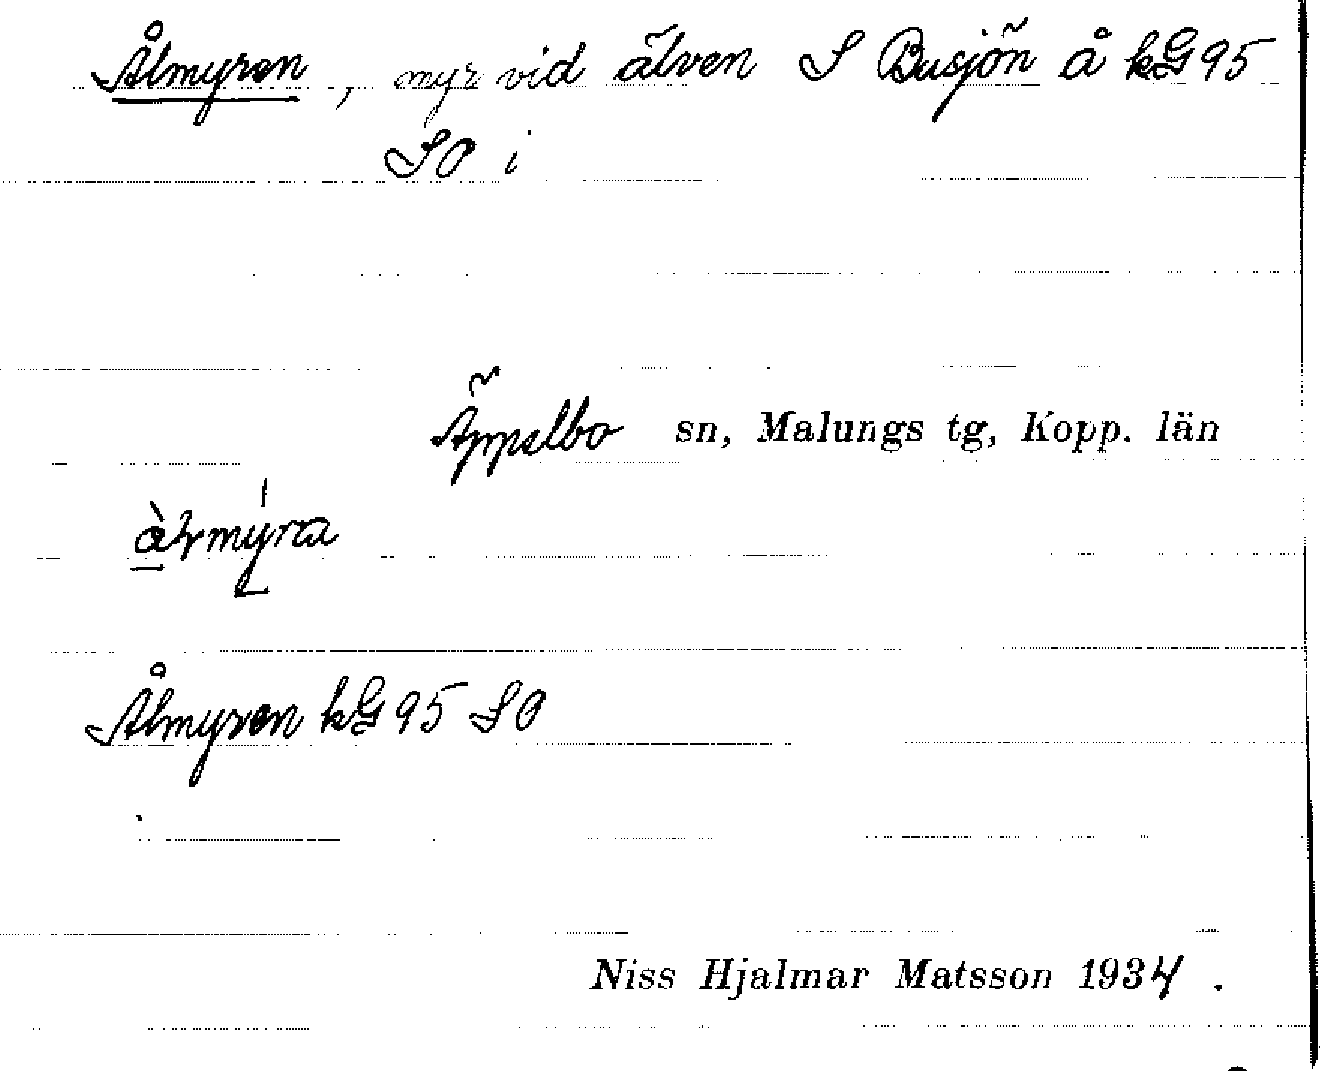 Ålmyren, myr vid älven S Busjön å kG95
SO i
Äppelbo sn, Malungs tg, Kopp. län
Ålmyren kG95 SO
Niss Hjalmar Matsson 1934.